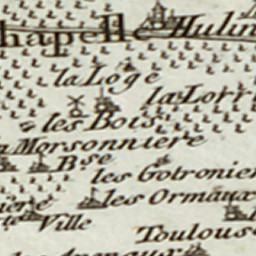 hapelle Hulin
la Loge
la Lori
les Bois
Morsonniere
Bse
les Gotronier
les Ormaux
iere
te Ville
Toulous